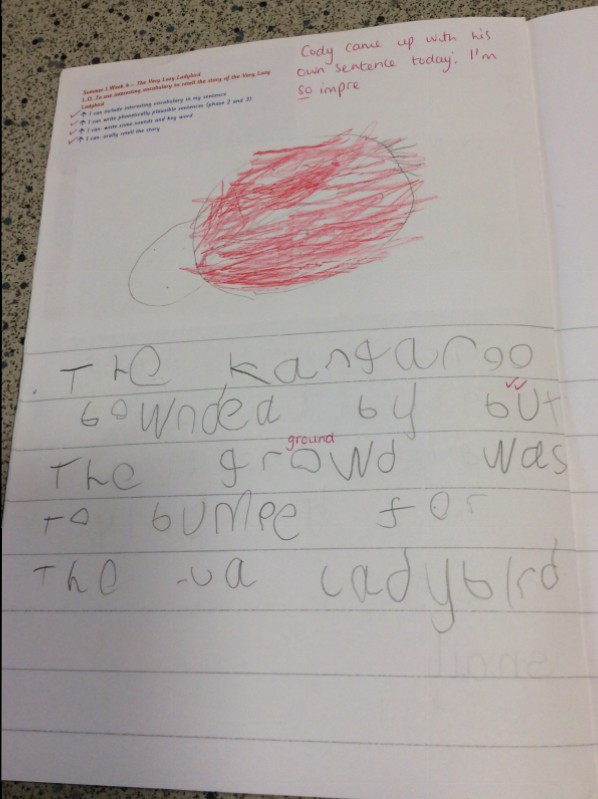 Cody came up with his
own sentence today. I'm
so impre
Summer 1 Week 6 - The Very Lazy Ladybird
L.O. To use interesting vocabulary to retell the story of the Very Lazy
Ladybird
I can include interesting vocabulary in my sentence
I can write phonetically plausible sentences (phase 2 and 3)
I can write some sounds and key word
I can orally retell the story
The kangaroo
bownded by but
ground
The growd was
to bumpee for
The ladybird